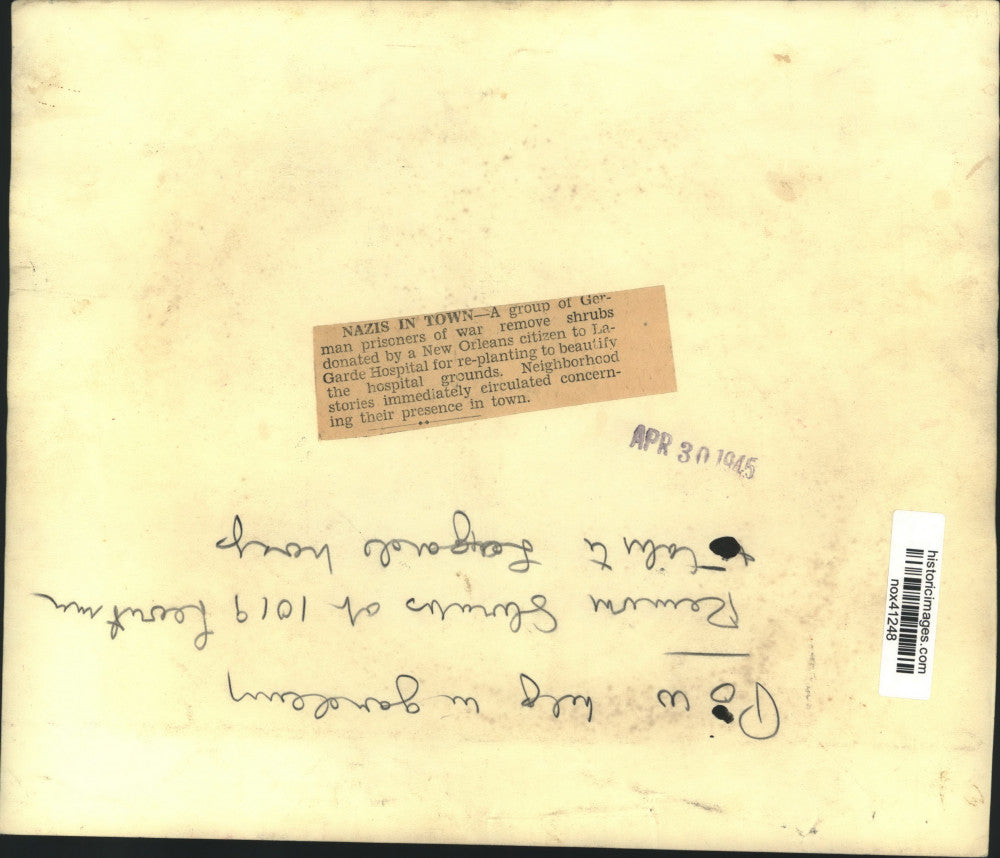 NAZIS IN TOWN—A group of Ger-
man prisoners of war remove shrubs
donated by a New Orleans citizen to La-
Garde Hospital for re-planting to beautify
the hospital grounds. Neighborhood
stories immediately circulated concern-
ing their presence in town.
APR 30 1945
POW help in
Shrubs at 1019
Lagarde hosp
historicimages.com
nox41248